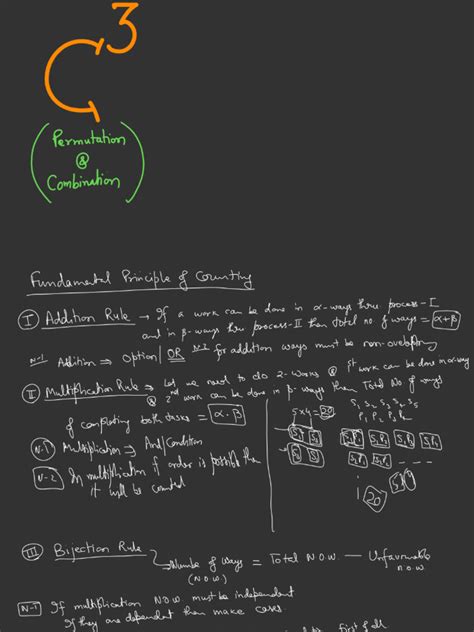 3
(Permutation
&
Combination)
Fundamental Principle of Counting
I Addition Rule → If a work can be done in α-ways thru process-I
and in β-ways thru process-II then total no of ways = α+β
N-1 Addition ⇒ Option/OR N-2 for addition ways must be non-overlapping
II Multiplication Rule → Let we need to do 2-works & 1st work can be done in α-way
& 2nd work can be done in β-ways then Total No of ways
of completing both tasks = α.β
5x4=20
S1 S2 S3 S4 S5
P1 P2 P3 P4
N-1 Multiplication ⇒ And/Condition
N-2 In multiplication if order is possible then
it will be counted
20
III Bijection Rule
→ Number of Ways = Total N.O.W. — Unfavourable
(N.O.W.) n.o.w.
N-1 If multiplication N.O.W. must be independent
If they are dependent then make cases.
first of all